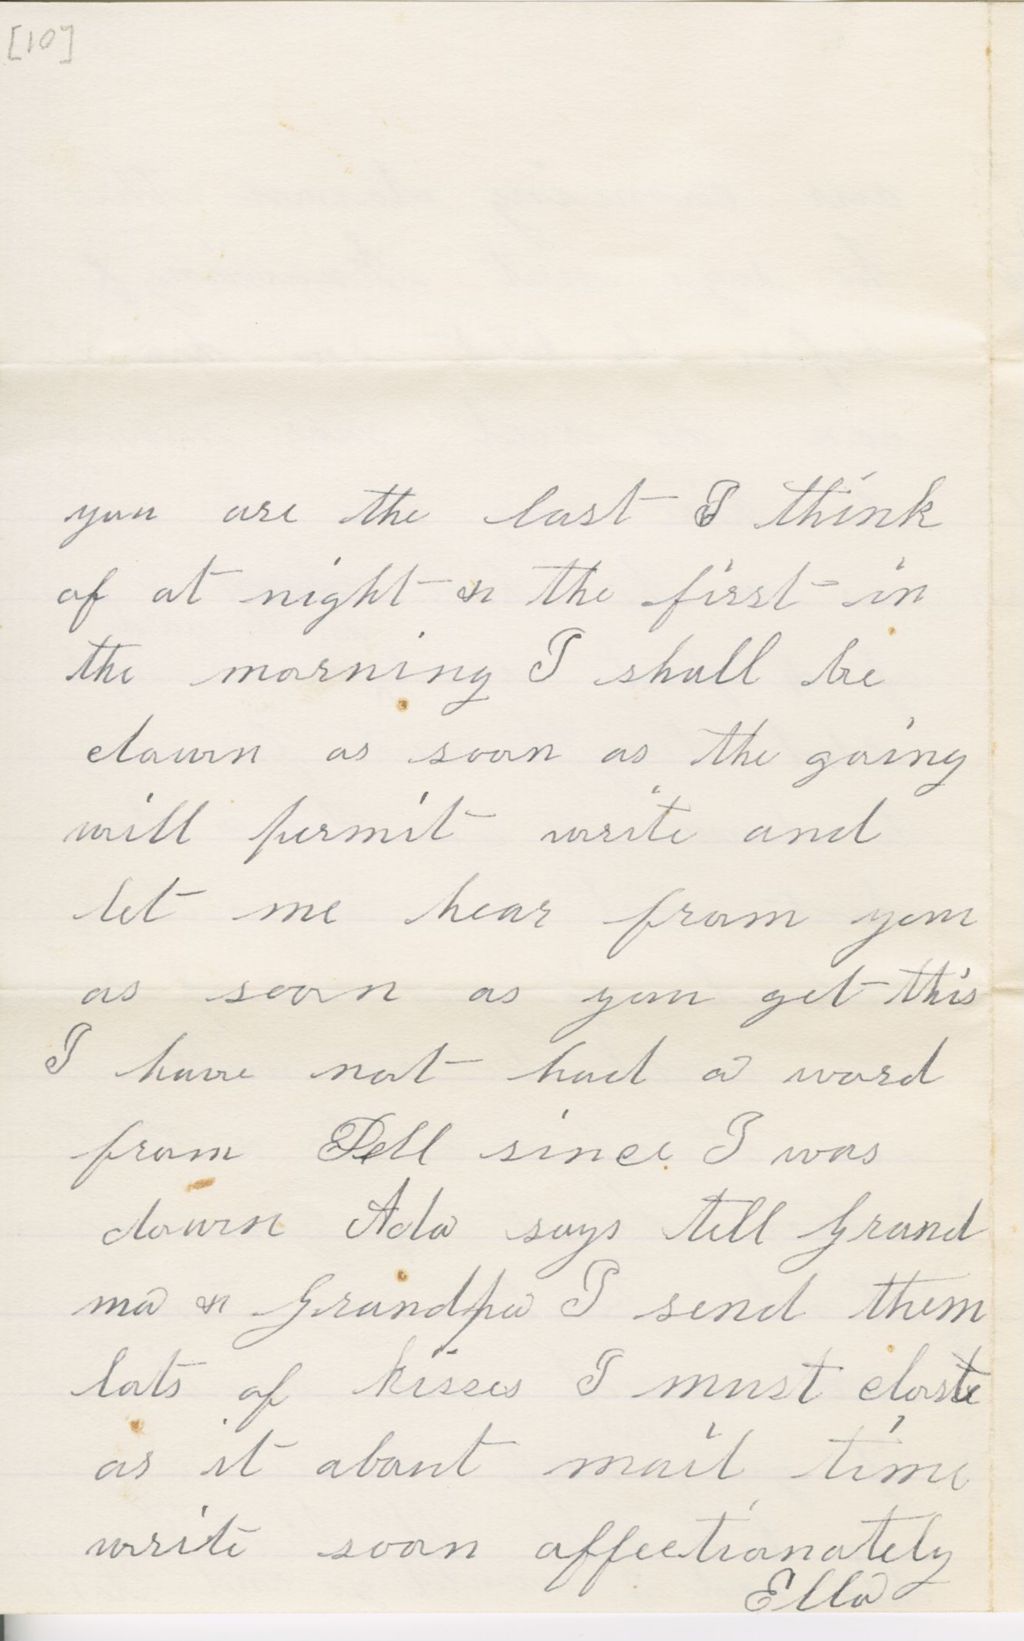 [10]
you are the last I think
of at night & the first in
the morning I shall be
down as soon as the going
will permit write and
let me hear from you
as soon as you get this
I have not had a word
from Dell since I was
down Ada says tell Grand
ma & Grandpa I send them
lots of kisses I must close
as it about mail time
write soon affectionately
Ella